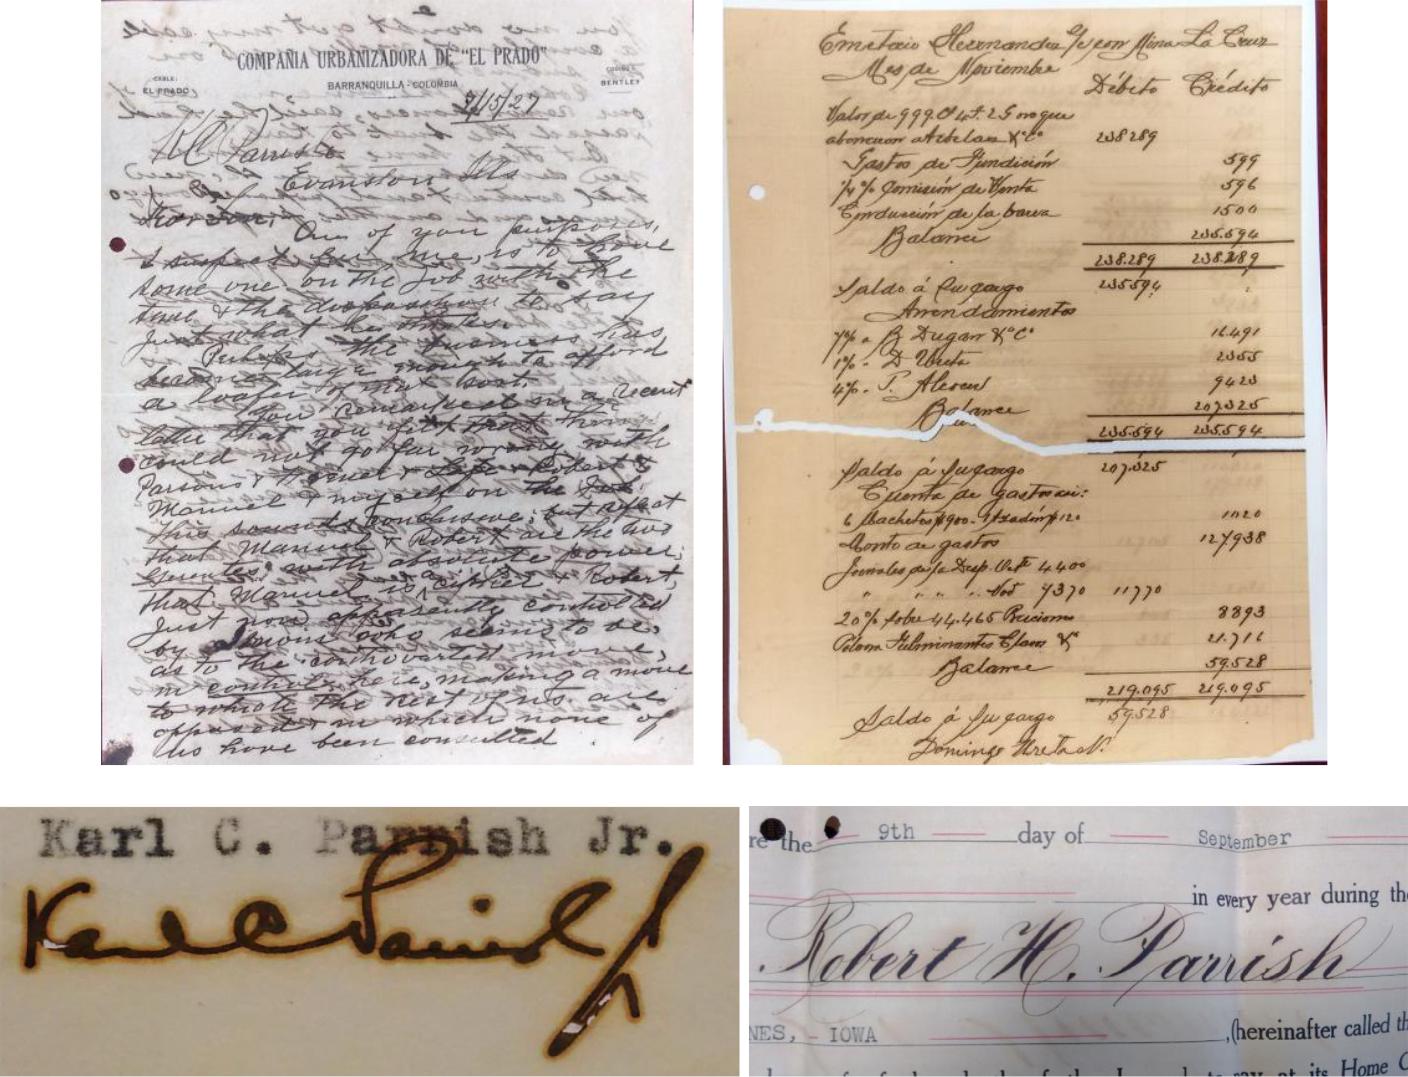 COMPAÑIA URBANIZADORA DE "EL PRADO"
CABLE:
EL PRADO
BARRANQUILLA - COLOMBIA
BENTLEY
7/15/27
K C Parrish
Evanston Ills
Dear Son:
One of your purposes,
I suspect for me, is to have
some one on the job with the
time & the disposition to say
just what he thinks.
Perhaps the business has
become large enough to afford
a loafer of that sort.
You remarked in a recent
letter that you
could not go far wrong with
Parsons &
Manuel & myself on the Job.
This sounds conclusive; but
that Manuel & Robert are the two
Gerentes with absolute power;
that Manuel is a cypher & Robert,
just now apparently controlled
by who seems to be,
as to the controverted move,
in control here, making a move
to which the rest of us are
opposed & in which none of
us have been consulted.
Emeterio Hernandez con Mina La Cruz
Mes de Noviembre
Débito Crédito
Valor de oro que
abonaron 238289
Gastos de Fundición 599
1/4% Comisión de Venta 596
Conducción de la barra 1500
Balance 235.594
238.289 238.289
Saldo á su cargo 235594
Arrendamientos
7% B Dugan 16.491
1% D. Ureta 2355
4% 9423
Balance 207.325
235.594 235.594
Saldo á su cargo 207.325
Cuenta de gastos
6 Machetes $900. 1 Azadón $120 1020
Monto de gastos 127938
Jornales de la 4400
" " " " Nov 7370 11770
20% sobre 44.465 8893
Fulminantes Clavos 21.716
Balance 59.528
219.095 219.095
Saldo á su cargo 59.528
Domingo Ureta N.
Karl C. Parrish Jr.
Karl C Parrish Jr
re the 9th day of September
in every year during the
Robert H. Parrish
NES, - IOWA ,(hereinafter called th
at its Home